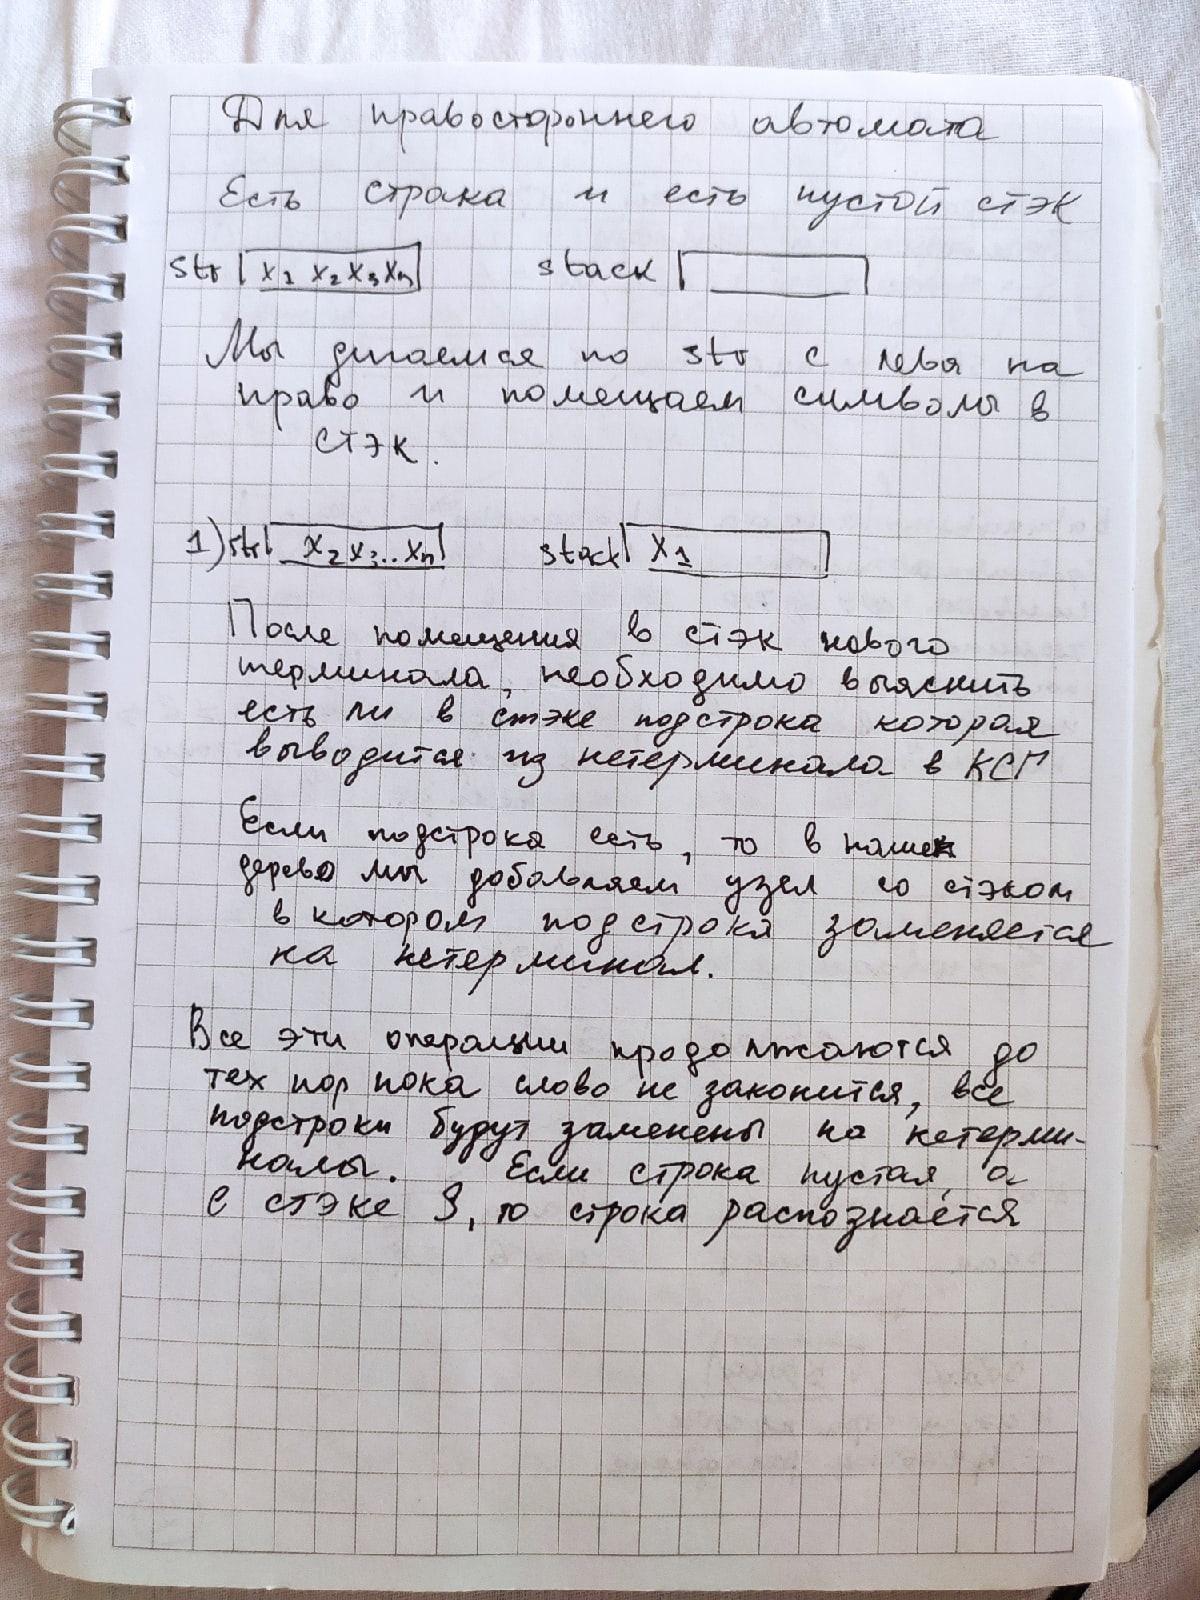 Для правостороннего автомата
Есть строка и есть пустой стэк
str x₁ x₂ x₃ xₙ stack
Мы дигаемся по str с лева на
право и помещаем символы в
стэк.
1) str x₂ x₃... xₙ stack x₁
После помещения в стэк нового
терминала, необходимо выяснить
есть ли в стэке подстрока которая
выводится из нетерминала в КСГ
Если подстрока есть, то в наше
дерево мы добавляем узел со стэком
в котором подстрока заменяется
на нетерминал.
Все эти операции продолжаются до
тех пор пока слово не законится, все
подстроки будут заменены на нетерми-
налы. Если строка пустая, а
в стэке S, то строка распознаётся